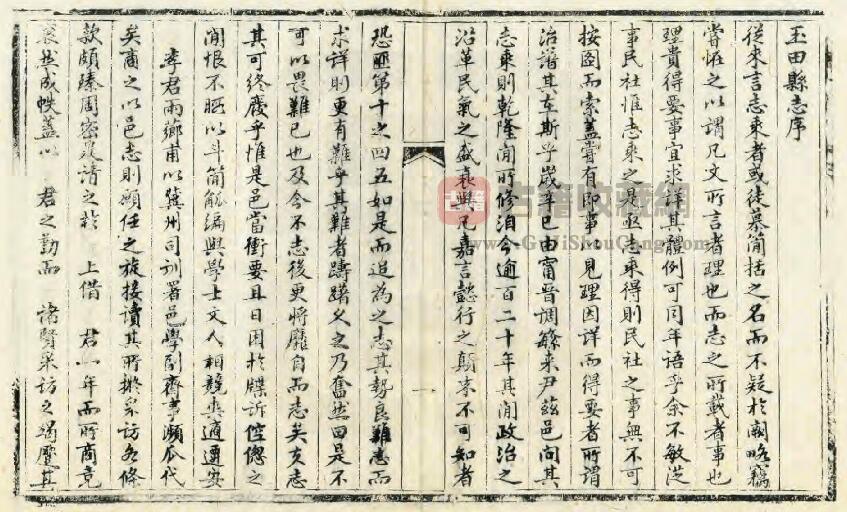 玉田縣志序
從來言志乘者或徒慕簡括之名而不疑於闕略竊
嘗怪之以謂凡文所言者理也而志之所載者事也
理貴得要事宜求詳其體例可同年語乎余不敏泛
事民社惟志乘之是亟志乘得則民社之事無不可
按圖而索蓋嘗有即事以見理因詳而得要者所謂
治譜其在斯乎歲辛巳由甯晉調繁來尹茲邑問其
志乘則乾隆間所修洎今逾百二十年其間政治之
沿革民氣之盛衰與凡嘉言懿行之顛末不可知者
恐匪第十之四五如是而追為之志其勢良難志而
求詳則更有難乎其難者躊躇久之乃奮然曰是不
可以畏難已也及今不志後更將靡自而志矣女志
其可終廢乎惟是邑當衝要且日困於牒訴倥傯之
間恨不暇以斗筲觚編與學士文人相競爽適遷安
李君雨薌甫以冀州司訓署邑學副齋事瀕瓜代
矣商之以邑志則願任之旋接讀其所擬采訪各條
款頗臻周密爰請之於 上借 君一年而所商竟
裒然成帙蓋以 君之勤而 諸賢采訪之竭靡其
古籍收藏網
www.GuJiShouCang.com